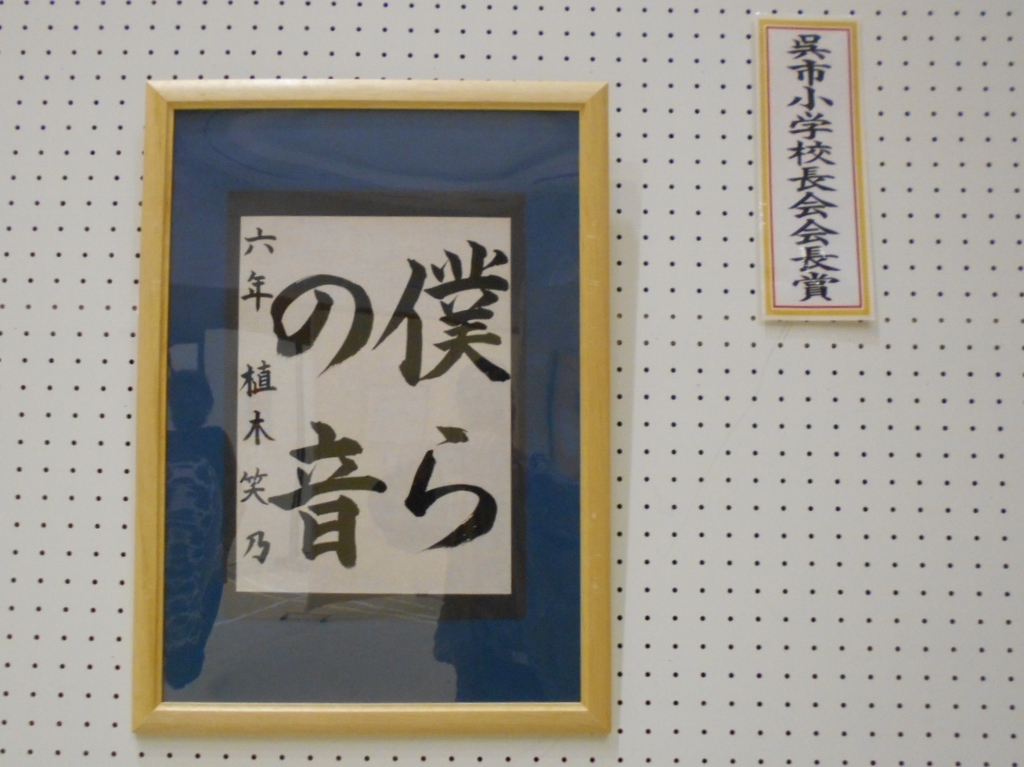 呉市小学校長会会長賞
僕ら
の音
六年 植木笑乃